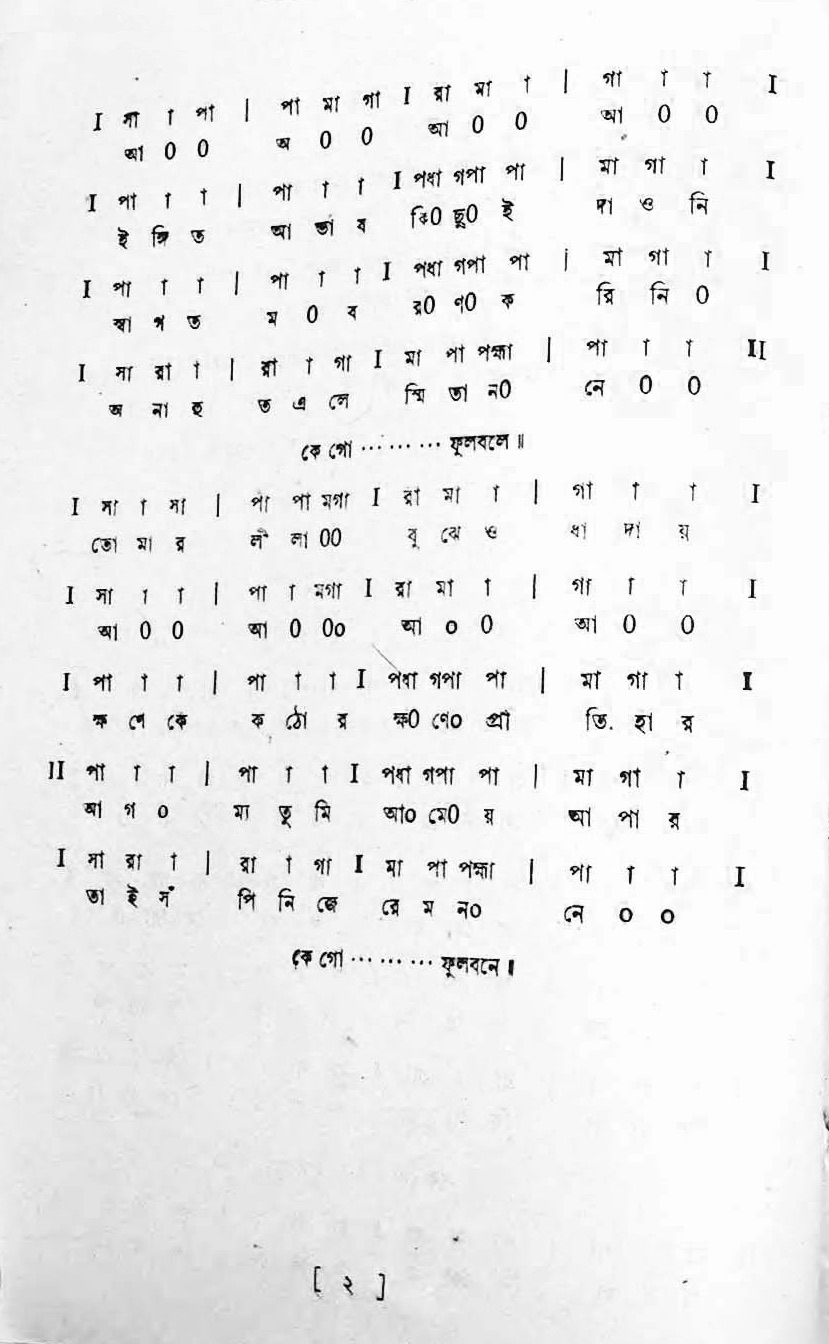 I সা া পা | পা মা গা I রা মা া | গা া া I
আ 0 0 অ 0 0 আ 0 0 আ 0 0
I পা া া | পা া া I পধা গপা পা | মা গা া I
ই ঙ্গি ত আ ভা ব কি0 ছু0 ই দা ও নি
I পা া া | পা া া I পধা গপা পা | মা গা া I
স্বা গ ত ম 0 ব র0 ণ0 ক রি নি 0
I সা রা া | রা া গা I মা পা পহ্মা | পা া া II
অ না হু ত এ লে স্মি তা ন0 নে 0 0
কে গো ········· ফুলবলে॥
I সা া সা | পা পা মগা I রা মা া | গা া া I
তো মা র লী লা 00 বু ঝে ও ধা দা য়
I সা া া | পা া মগা I রা মা া | গা া া I
আ 0 0 আ 0 0০ আ ০ 0 আ 0 0
I পা া া | পা া া I পধা গপা পা | মা গা া I
ক্ষ ণে কে ক ঠো র ক্ষ0 ণে০ প্রী তি. হা র
II পা া া | পা া া I পধা গপা পা | মা গা া I
আ গ ০ মা তু মি আ০ মে0 য় আ পা র
I সা রা া | রা া গা I মা পা পহ্মা | পা া া I
তা ই সঁ পি নি জে রে ম ন০ নে ০ ০
কে গো ········· ফুলবনে॥
[ ২ ]